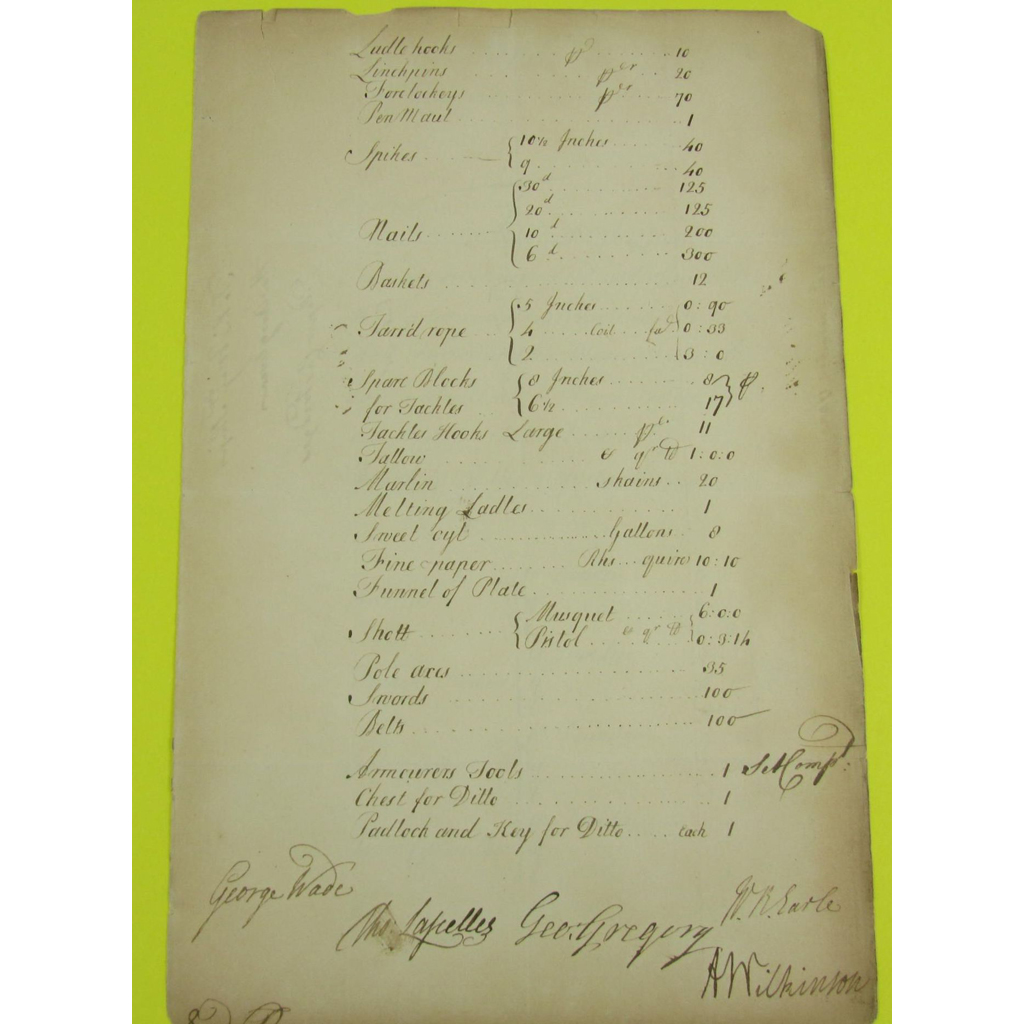 Ladle hooks .......... pr ........ 10
Linchpins .......... per ... 20
Forelockeys .......... per ... 70
Pen Maul .......... 1
Spikes ...... { 10½ Inches ...... 40
9 .......... 40
{ 30d .......... 125
20d .......... 125
Nails ...... { 10d .......... 200
6d .......... 300
Baskets .......... 12
{ 5 Inches ...... 0:90
Tarr'd rope ... { 4 ..... Coil ... 0:33
2 .......... 3:0
Spare Blocks { 8 Inches ....... 8
for Tackles { 6½ .......... 17
Tackles Hooks Large ...... pr. 11
Tallow .......... c qr lb 1:0:0
Marlin .......... skains .. 20
Melting Ladles .......... 1
Sweet oyl .......... Gallons 8
Fine paper ....... Rhs ... quire 10:10
Funnel of Plate .......... 1
{ Musquet ...... 6:0:0
Shott ...... { Pistol ... c qr lb 0:3:14
Pole axes .......... 35
Swords .......... 100
Belts .......... 100
Armourers Tools .......... 1 Set Compt:
Chest for Ditto .......... 1
Padlock and Key for Ditto .... Each 1
George Wade
Tho: Lascelles Geo: Gregory W. R. Earle
A Wilkinson